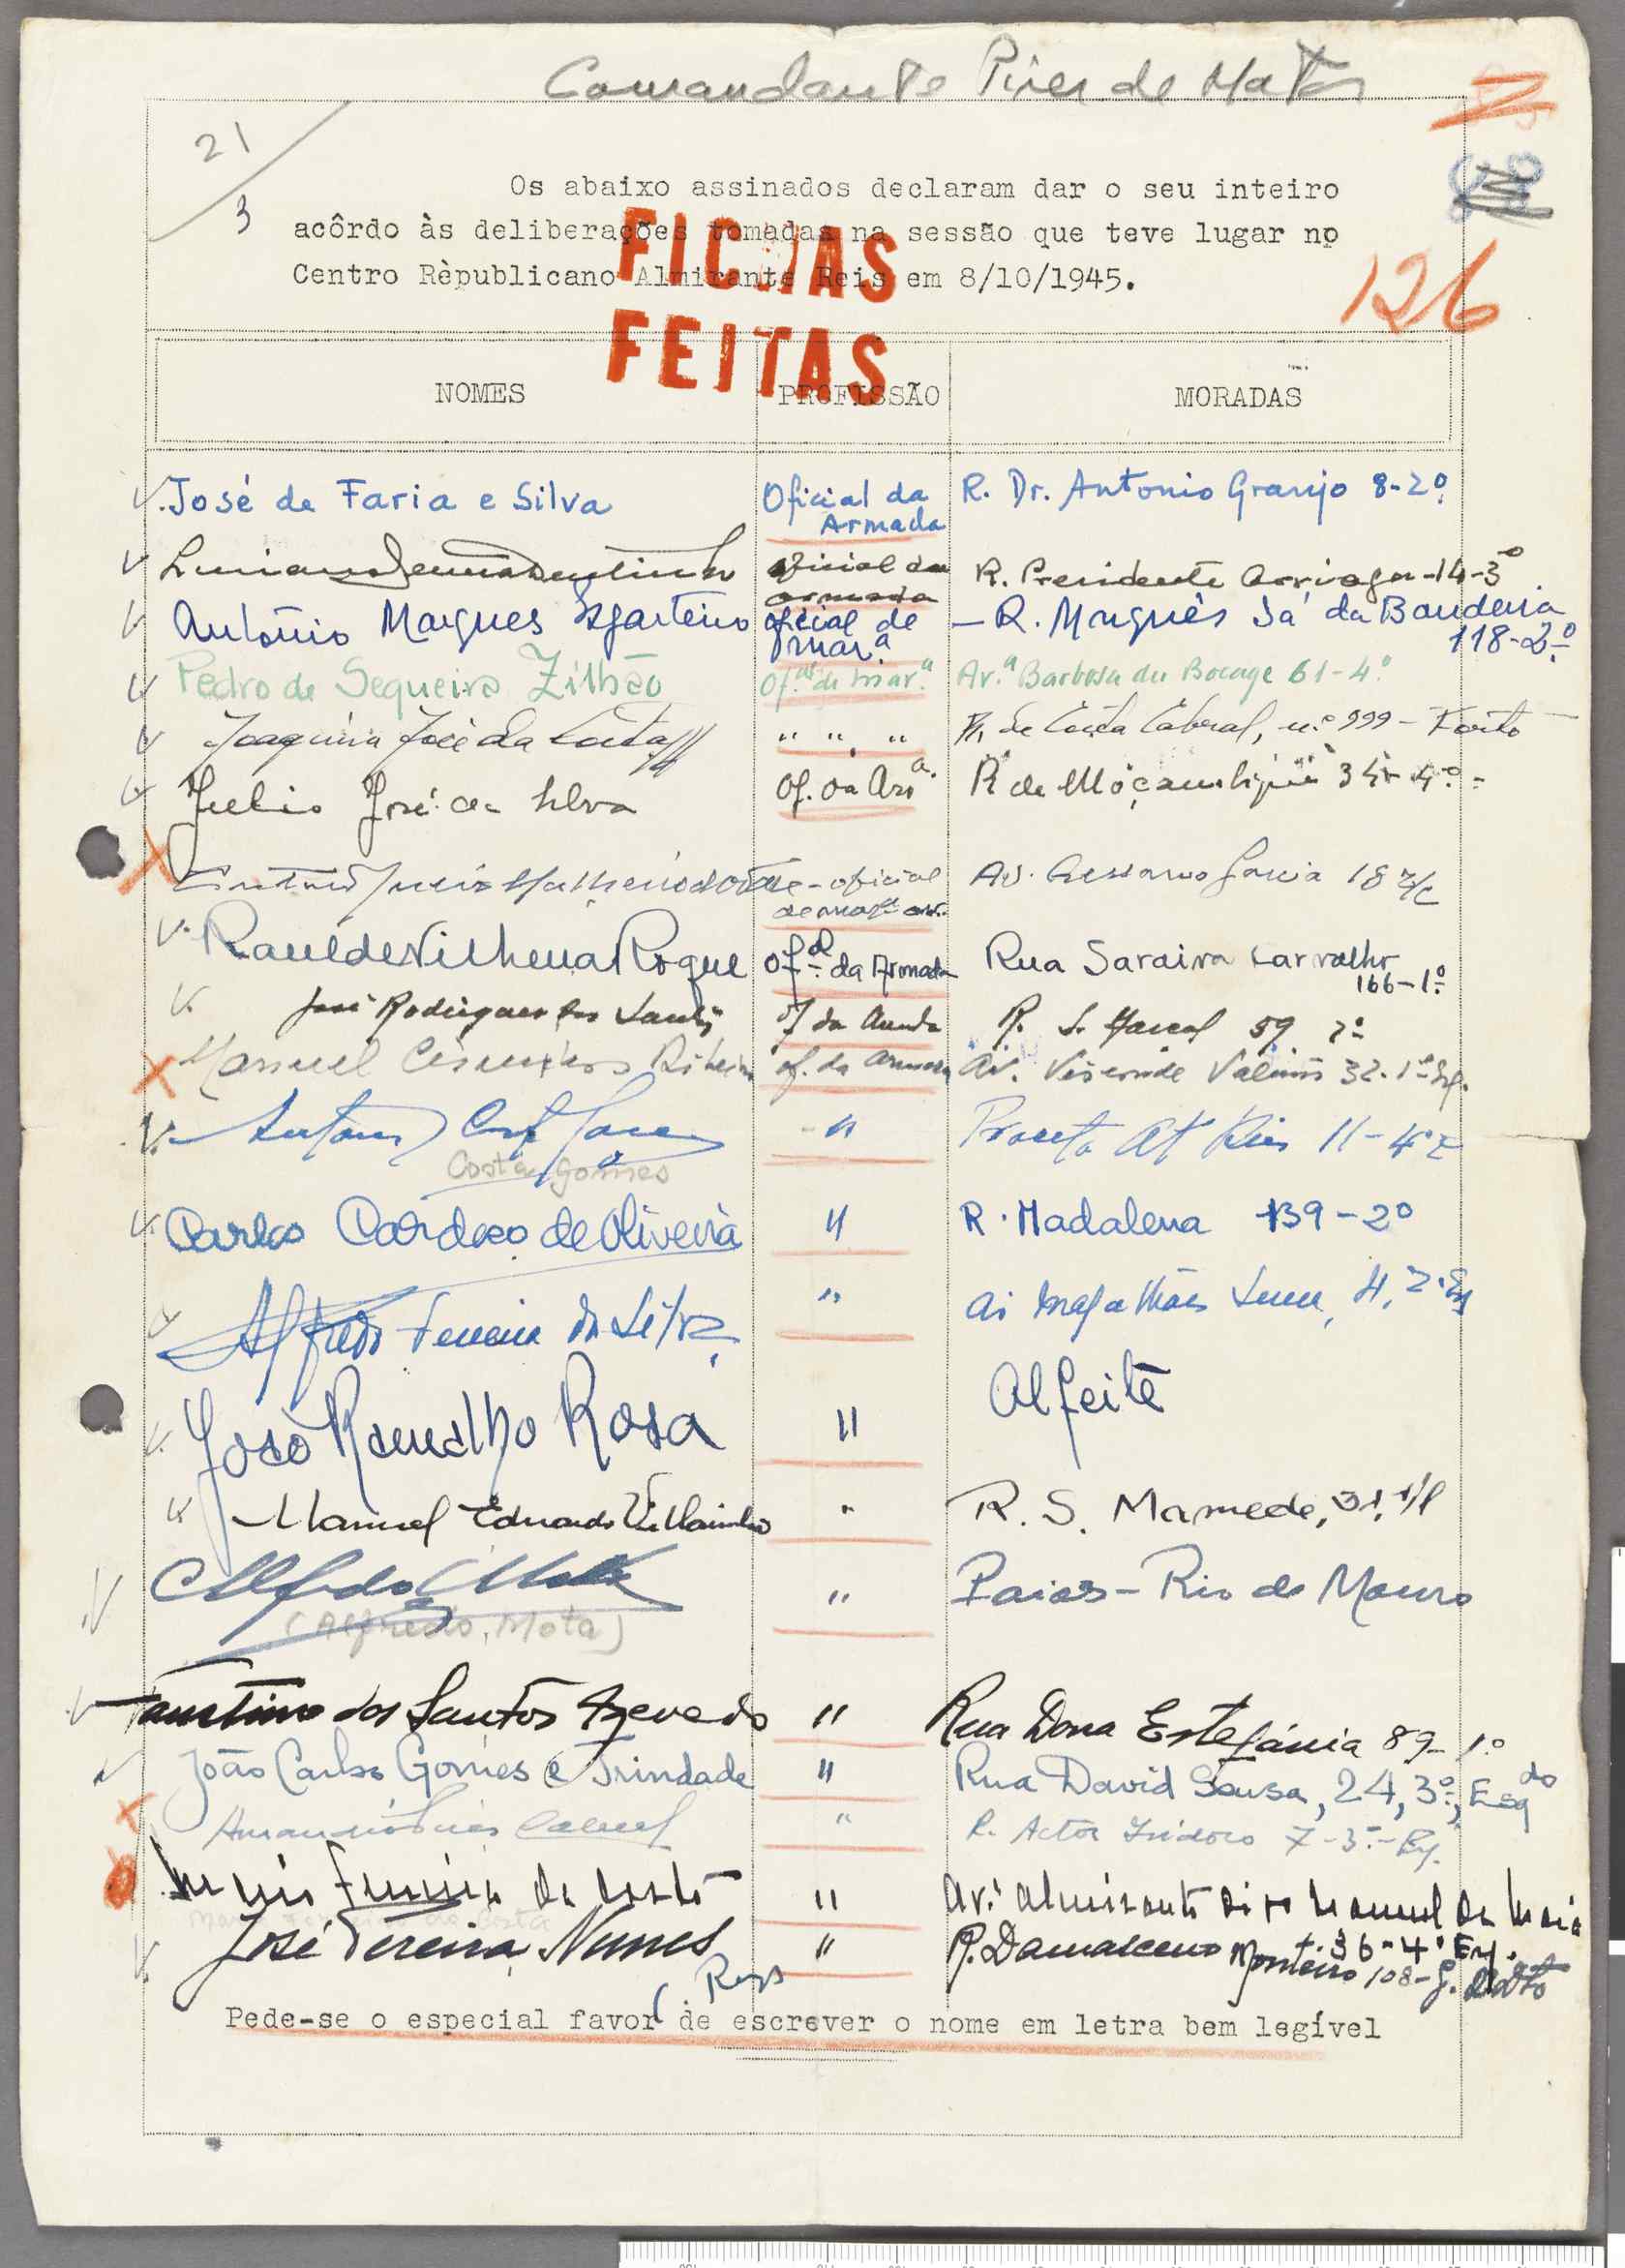 Comandante Pires de Matos
21
3
126
Os abaixo assinados declaram dar o seu inteiro
acôrdo às deliberações tomadas na sessão que teve lugar no
Centro Rèpublicano Almirante Reis em 8/10/1945.
FICHAS
FEITAS
NOMES PROFISSÃO MORADAS
José de Faria e Silva Oficial da R. Dr. Antonio Granjo 8-2º
Armada
Luciano oficial da R. Presidente Arriaga-14-3º
armada
António Marques Esparteiro oficial de — R. Marquês Sá da Bandeira
mar.ª 118-2.º
Pedro de Sequeira Zilhão Of.al de mar.ª Av.ª Barbosa du Bocage 61-4.º
Joaquim José da Costa " " " R. de Costa Cabral, n.º 999 - Porto
Julio José da Silva Of. da Ar.ª R de Moçambique 34- 4.º
António oficial Av. Ressano Garcia 18 r/c
Raul de Vilhena Roque Of.al da Armada Rua Saraiva Carvalho
166-1.º
José Rodrigues dos Santos Of da Armada R. S. Marçal 59 2º
Manuel Ribeiro of. da Armada Av. Visconde Valmôr 32-1º Esq.
António Costa Gomes " Praceta 11-4º
Costa Gomes
Carlos Cardoso de Oliveira " R. Madalena 139-2º
Alfredo Ferreira da Silva " Av Magalhães Lima, 4, 2º Esq
José Ramalho Rosa " Alfeite
Manuel Eduardo " R. S. Mamede, 31, r/c
Alfredo Mota " Paiões - Rio de Mouro
(Alfredo, Mota)
Faustino dos Santos Azevedo " Rua Dona Estefânia 89-1.º
João Carlos Gomes e Trindade " Rua David Sousa, 24, 3º, Esqdo
" R. Actor Isidoro 7-3º
Mario Ferreira da Costa " Av.ª Almirante Manuel da Maia
36-4º Esq.
José Pereira Nunes " R. Damasceno Monteiro 108-
Pede-se o especial favor de escrever o nome em letra bem legível